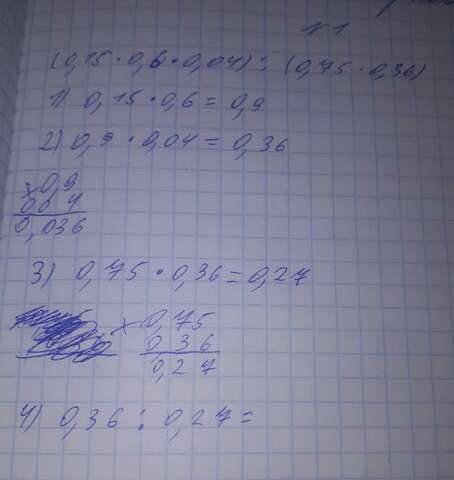 N1
(0,15 · 0,6 · 0,04) : (0,75 · 0,36)
1) 0,15 · 0,6 = 0,9
2) 0,9 · 0,04 = 0,36
×0,9
004
0,036
3) 0,75 · 0,36 = 0,27
×0,75
0 3 6
0,27
4) 0,36 : 0,27 =